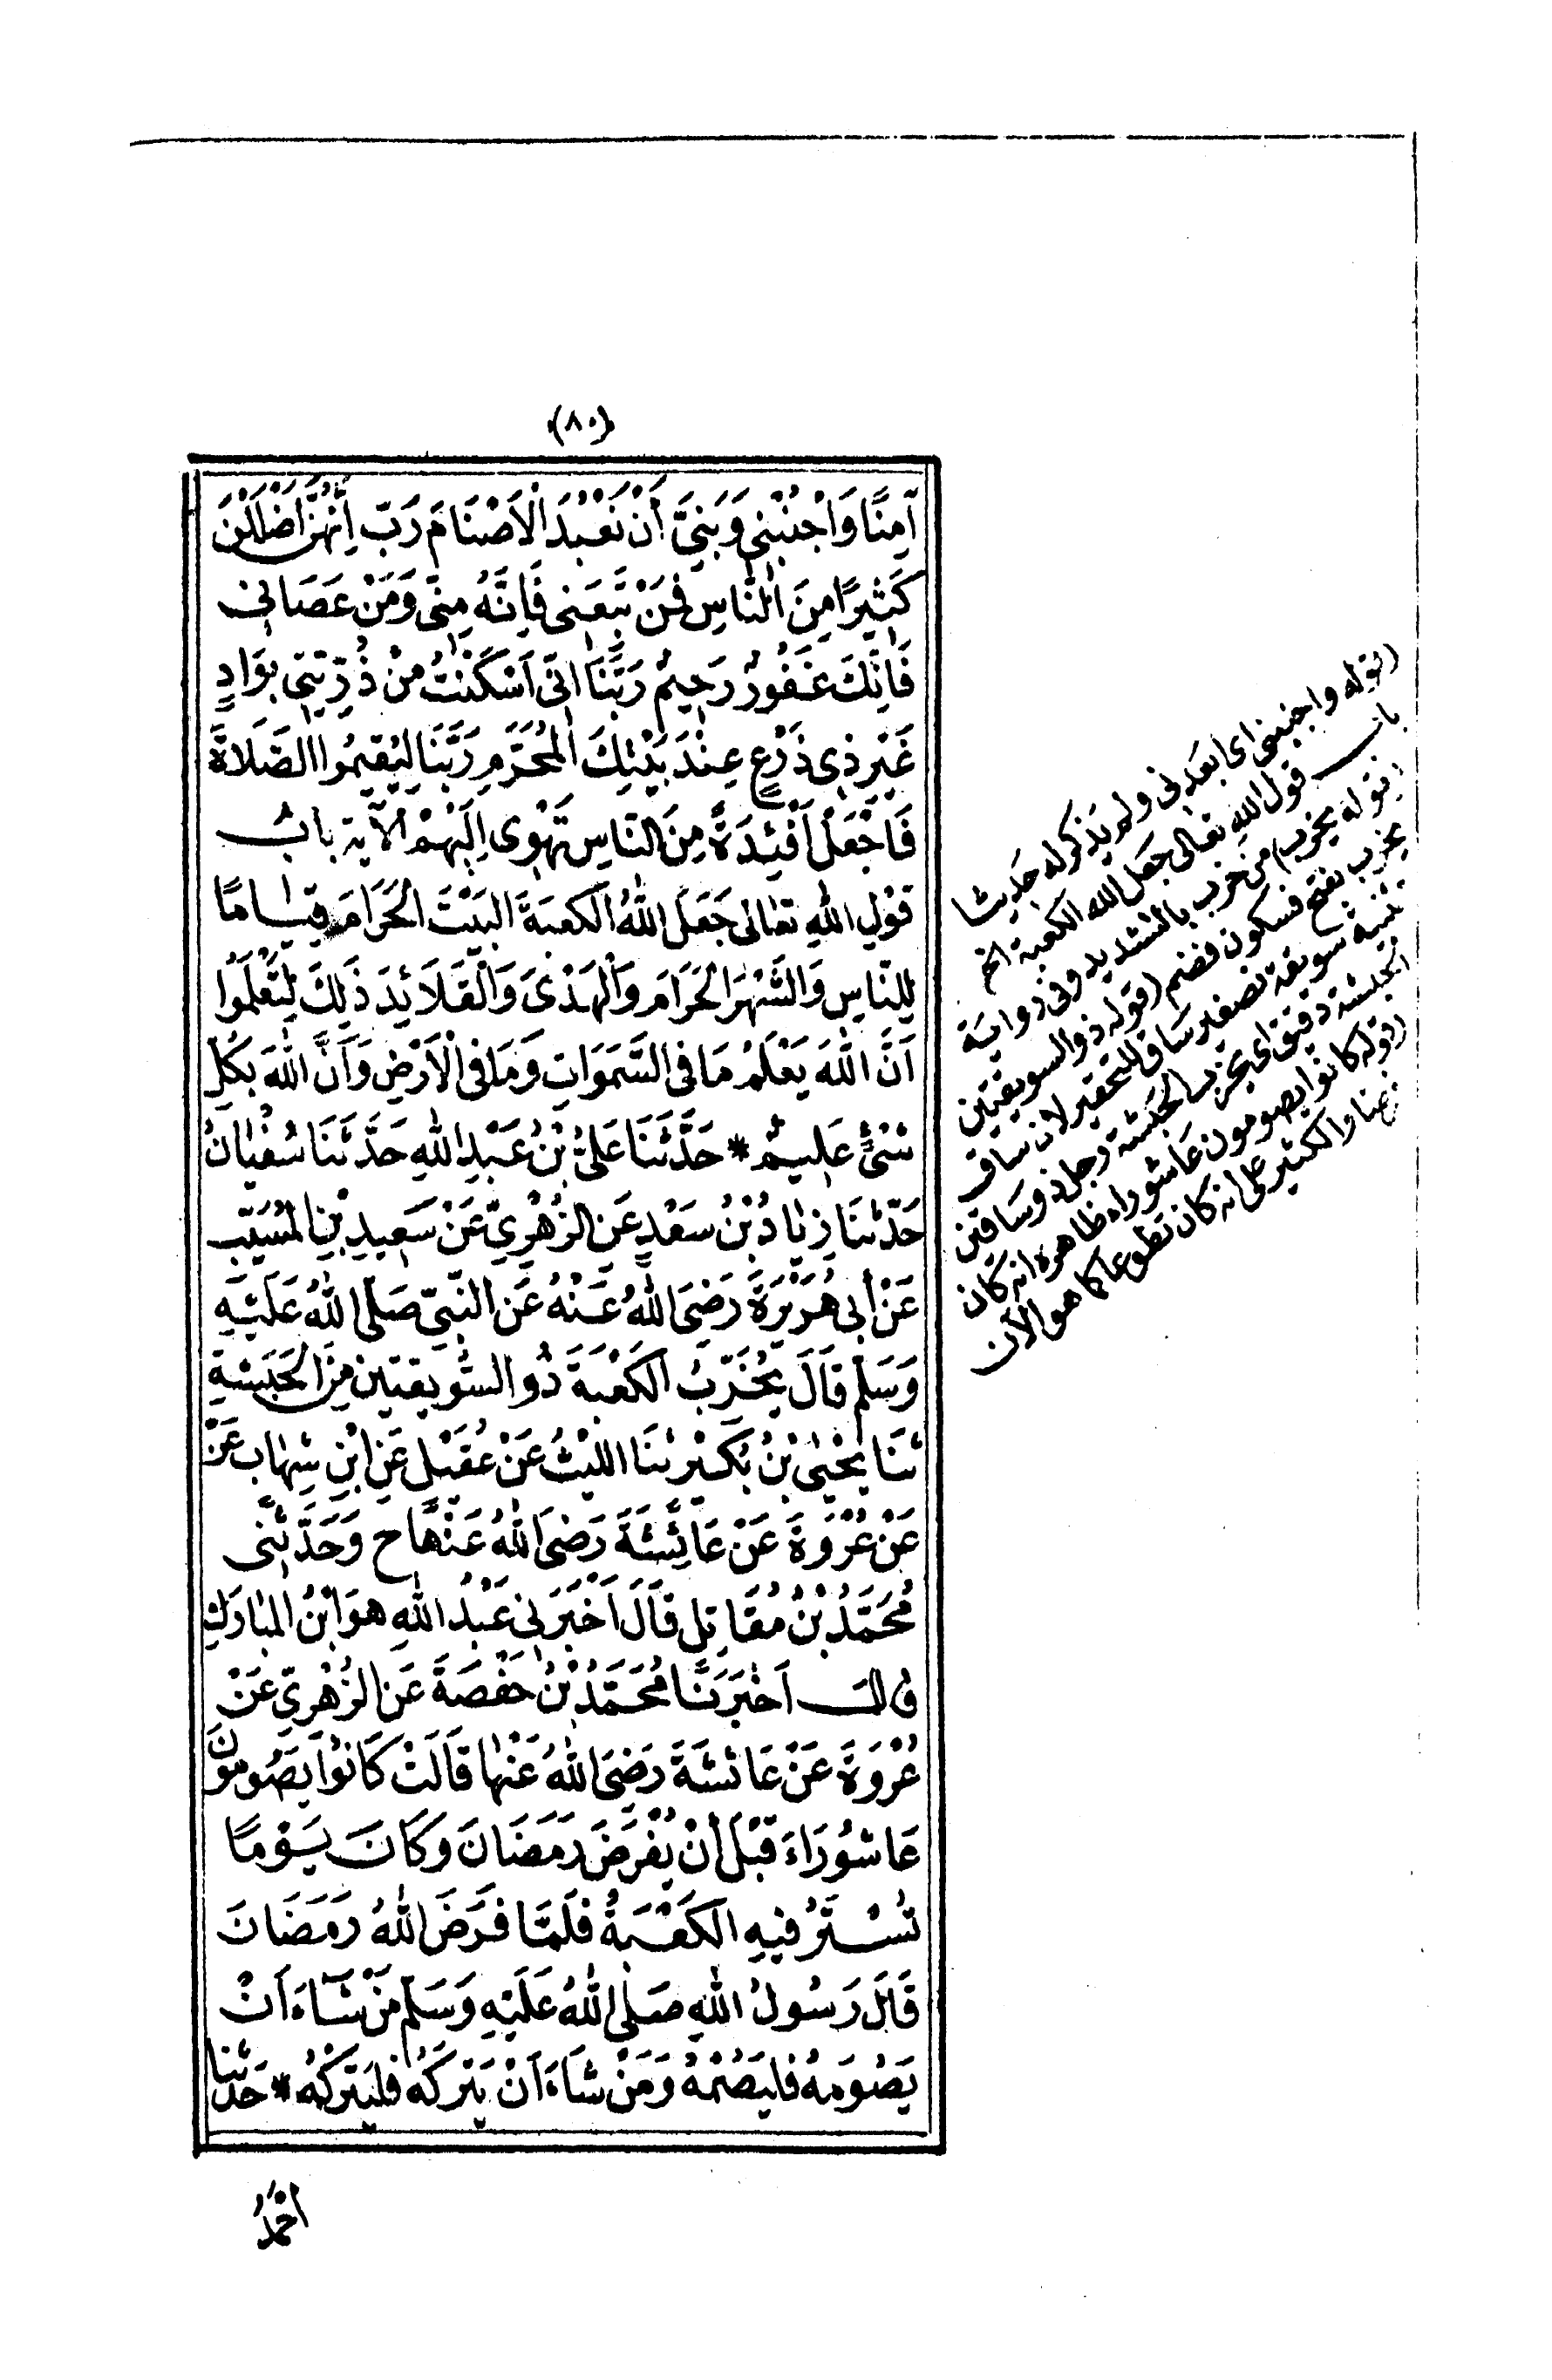 (٨٠)
آمِنًا وَاجْنُبْنِي وَبَنِيَّ أَنْ نَعْبُدَ الْأَصْنَامَ رَبِّ إِنَّهُنَّ أَضْلَلْنَ
كَثِيرًا مِنَ النَّاسِ فَمَنْ تَبِعَنِي فَإِنَّهُ مِنِّي وَمَنْ عَصَانِي
فَإِنَّكَ غَفُورٌ رَحِيمٌ رَبَّنَا إِنِّي أَسْكَنْتُ مِنْ ذُرِّيَّتِي بِوَادٍ
غَيْرِ ذِي زَرْعٍ عِنْدَ بَيْتِكَ الْمُحَرَّمِ رَبَّنَا لِيُقِيمُوا الصَّلَاةَ
فَاجْعَلْ أَفْئِدَةً مِنَ النَّاسِ تَهْوِي إِلَيْهِمْ الْآيَة بابُ
قَوْلِ اللهِ تعالى جَعَلَ اللهُ الكَعبَةَ البَيْتَ الحَرَامَ قِيَامًا
لِلنَّاسِ وَالشَّهْرَ الحَرَامَ وَالْهَدْيَ وَالْقَلَائِدَ ذَلِكَ لِتَعْلَمُوا
أَنَّ اللهَ يَعْلَمُ مَا فِي السَّمَوَاتِ وَمَا فِي الْأَرْضِ وَأَنَّ اللهَ بِكُلِّ
شَيْءٍ عَلِيمٌ * حَدَّثَنَا عَلِيُّ بْنُ عَبْدِ اللهِ حَدَّثَنَا سُفْيَانُ
حَدَّثَنَا زِيَادُ بْنُ سَعْدٍ عَنِ الزُّهْرِيِّ عَنْ سَعِيدِ بْنِ المُسَيَّبِ
عَنْ أَبِي هُرَيْرَةَ رَضِيَ اللهُ عَنْهُ عَنِ النَّبِيِّ صَلَّى اللهُ عَلَيْهِ
وَسَلَّمَ قَالَ يُخَرِّبُ الكَعْبَةَ ذُو السُّوَيْقَتَيْنِ مِنَ الحَبَشَةِ
ثَنَا يَحْيَى بْنُ بُكَيْرٍ ثنَا اللَّيْثُ عَنْ عُقَيْلٍ عَنِ ابْنِ شِهَابٍ عَنْ
عَنْ عُرْوَةَ عَنْ عَائِشَةَ رَضِيَ اللهُ عَنْهَا ح وَحَدَّثَنِي
مُحَمَّدُ بْنُ مُقَاتِلٍ قَالَ أَخْبَرَنِي عَبْدُ اللهِ هوَ ابْنُ المُبَارَكِ
قال أَخْبَرَنَا مُحَمَّدُ بْنُ حَفْصَةَ عَنِ الزُّهْرِيِّ عَنْ
عُرْوَةَ عَنْ عَائشَةَ رَضِيَ اللهُ عَنْهَا قَالَتْ كَانُوا يَصُومُونَ
عَاشُورَاءَ قَبْلَ أَنْ يُفْرَضَ رَمَضَانُ وَكَانَ يَوْمًا
تُسْتَرُ فِيهِ الكَعْبَةُ فَلَمَّا فَرَضَ اللهُ رَمَضَانَ
قَالَ رَسُولُ اللهِ صَلَّى اللهُ عَلَيْهِ وَسَلَّمَ مَنْ شَاءَ أَنْ
يَصُومَهُ فَلْيَصُمْهُ وَمَنْ شَاءَ أَنْ يَتْرُكَهُ فَلْيَتْرُكْهُ * حَدَّثَنَا
أَحْمَدُ
(قوله واجنبني اى ابعدنى ولم يذكر له حديثا
باب قول الله تعالى جعل الله الكعبة الخ
(قوله يخرب) من خرب بالتشديد وفى رواية
يخرب بفتح فسكون فضم (قوله ذو السويقتين
تثنية سويقة تصغير ساق للتحقير لان ساق
الحبشة دقيق اى يخرب الحبشة رجل ذو ساقين
(قوله كانوا يصومون عاشوراء ظاهره انه كان
فرضا والكثير على انه كان تطوعا كما هو الآن